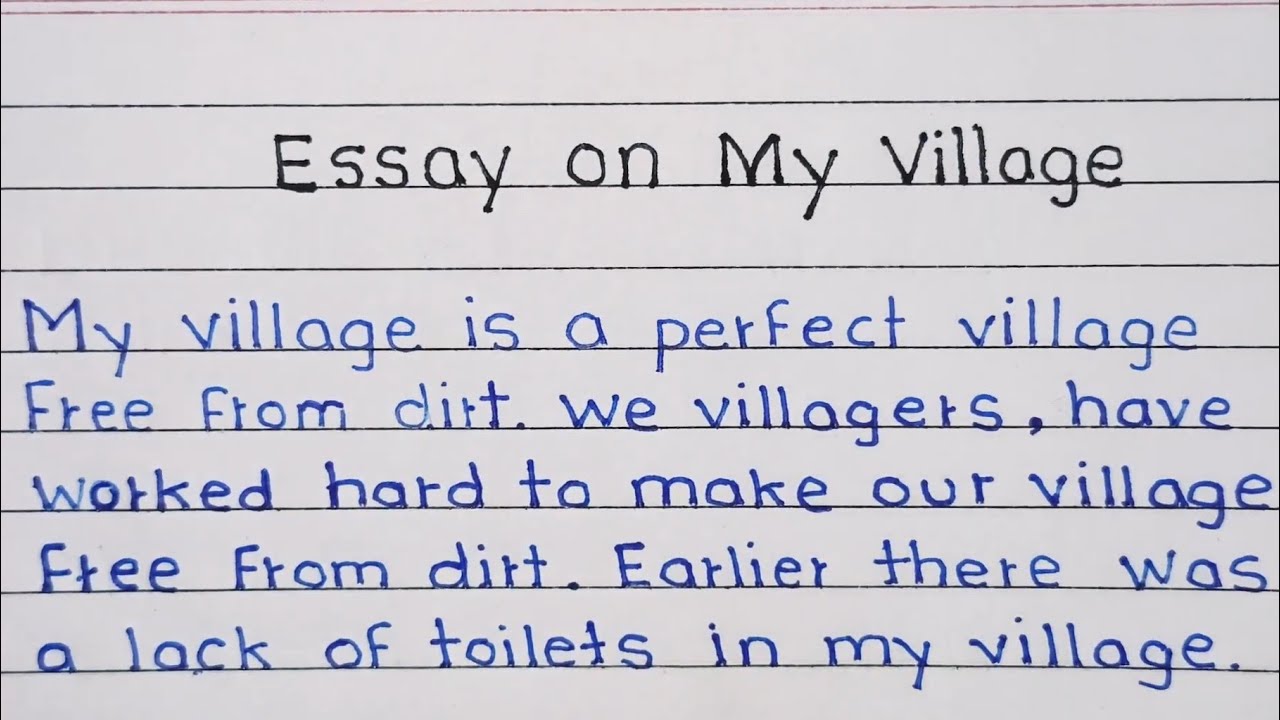 Essay on My Village
My village is a perfect village
free from dirt. we villagers, have
worked hard to make our village
free from dirt. Earlier there was
a lack of toilets in my village.